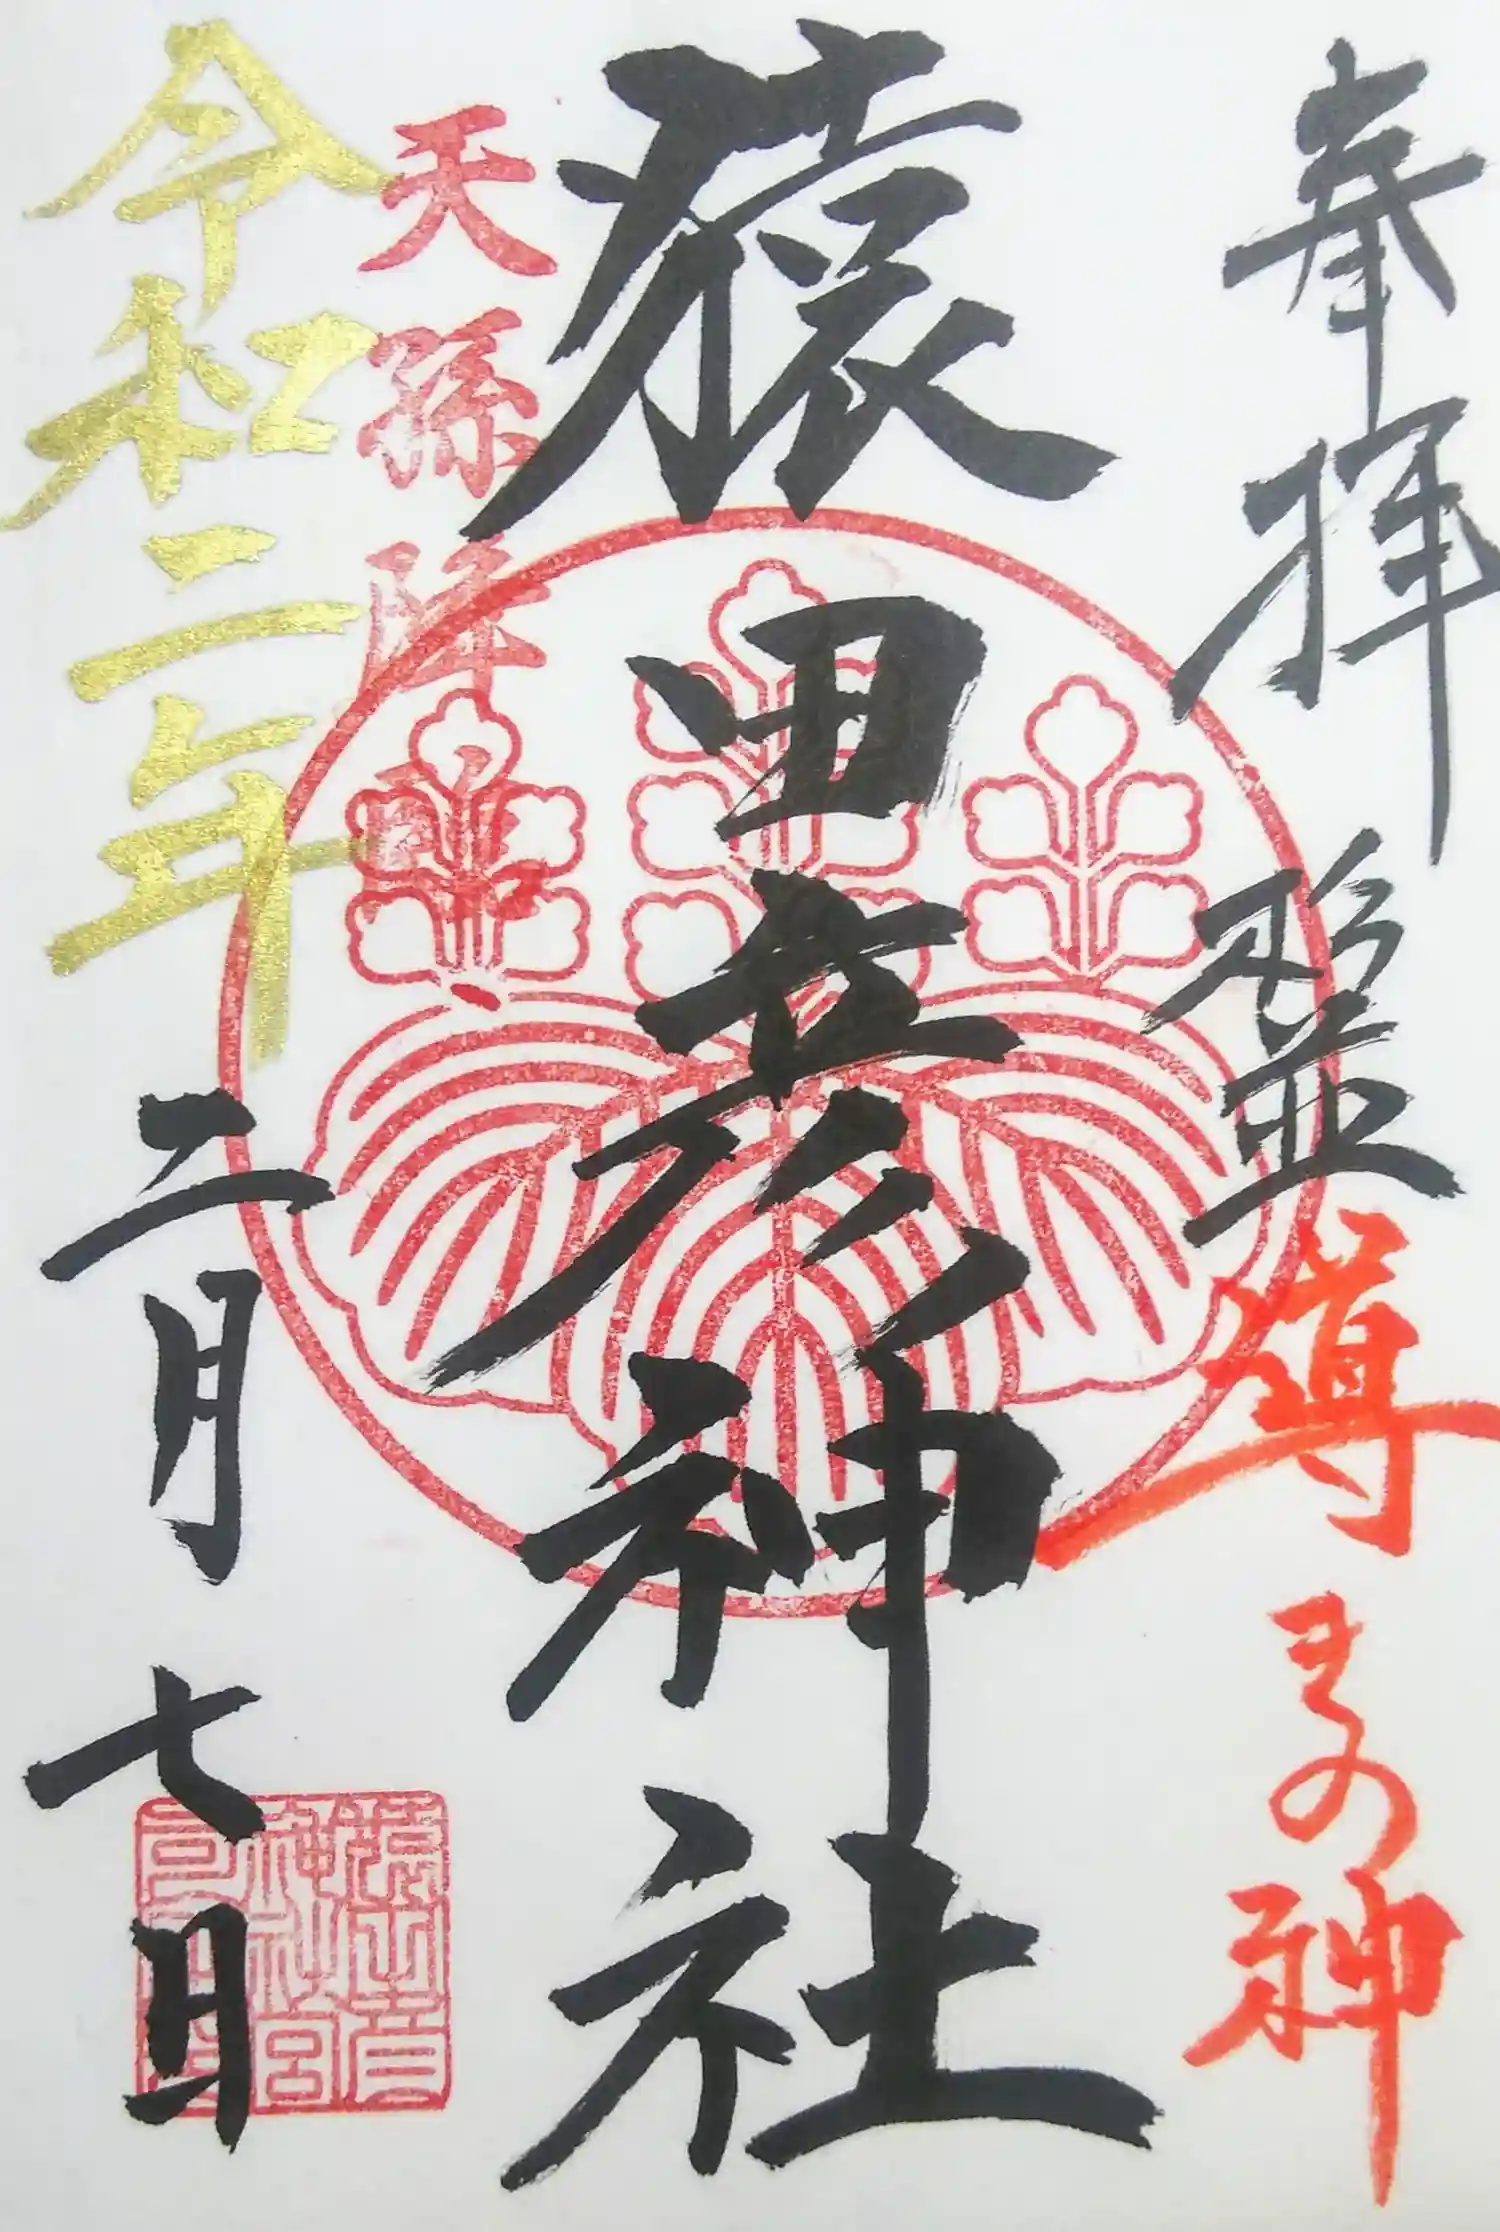 奉拝
導きの神
猿田彦神社
天孫降
令和二年
二月七日